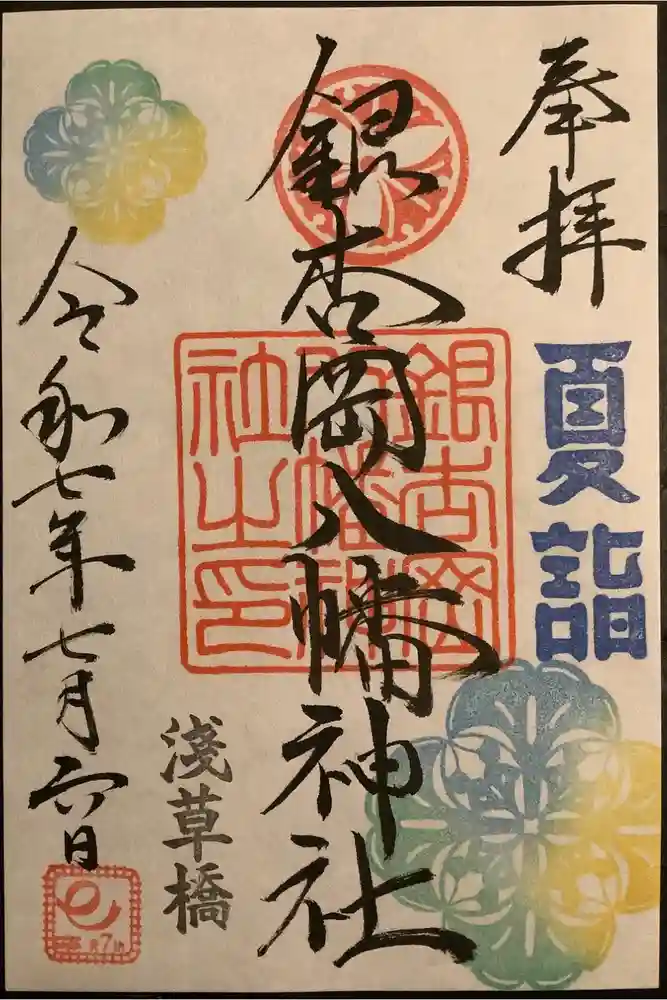 奉拝
夏詣
銀杏岡八幡神社
銀杏岡八幡神社之印
淺草橋
令和七年七月六日